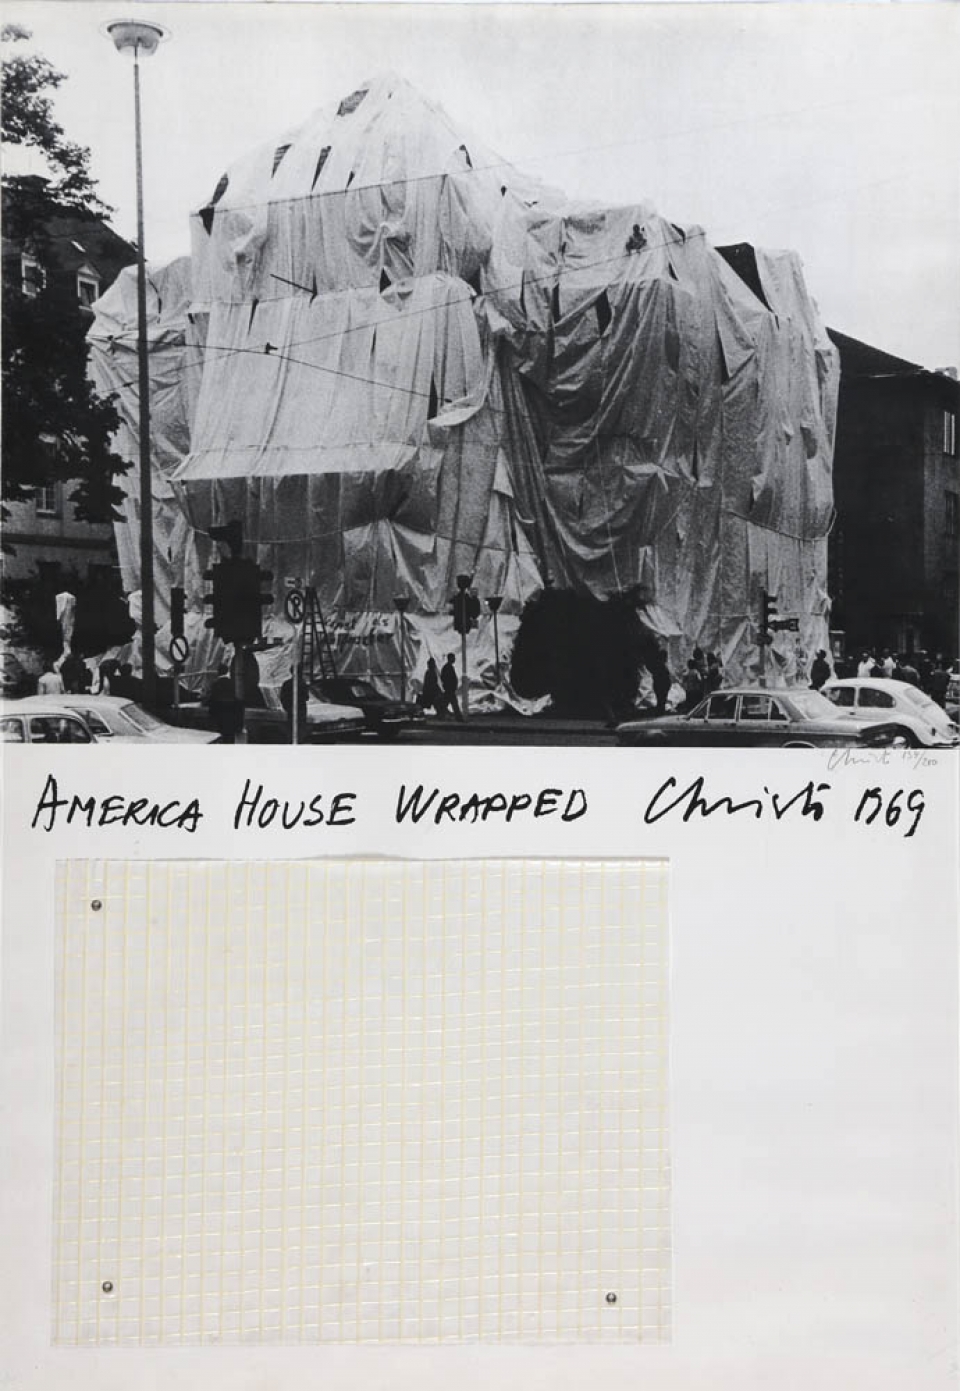 Christo 134/200
AMERICA HOUSE WRAPPED Christo 1969